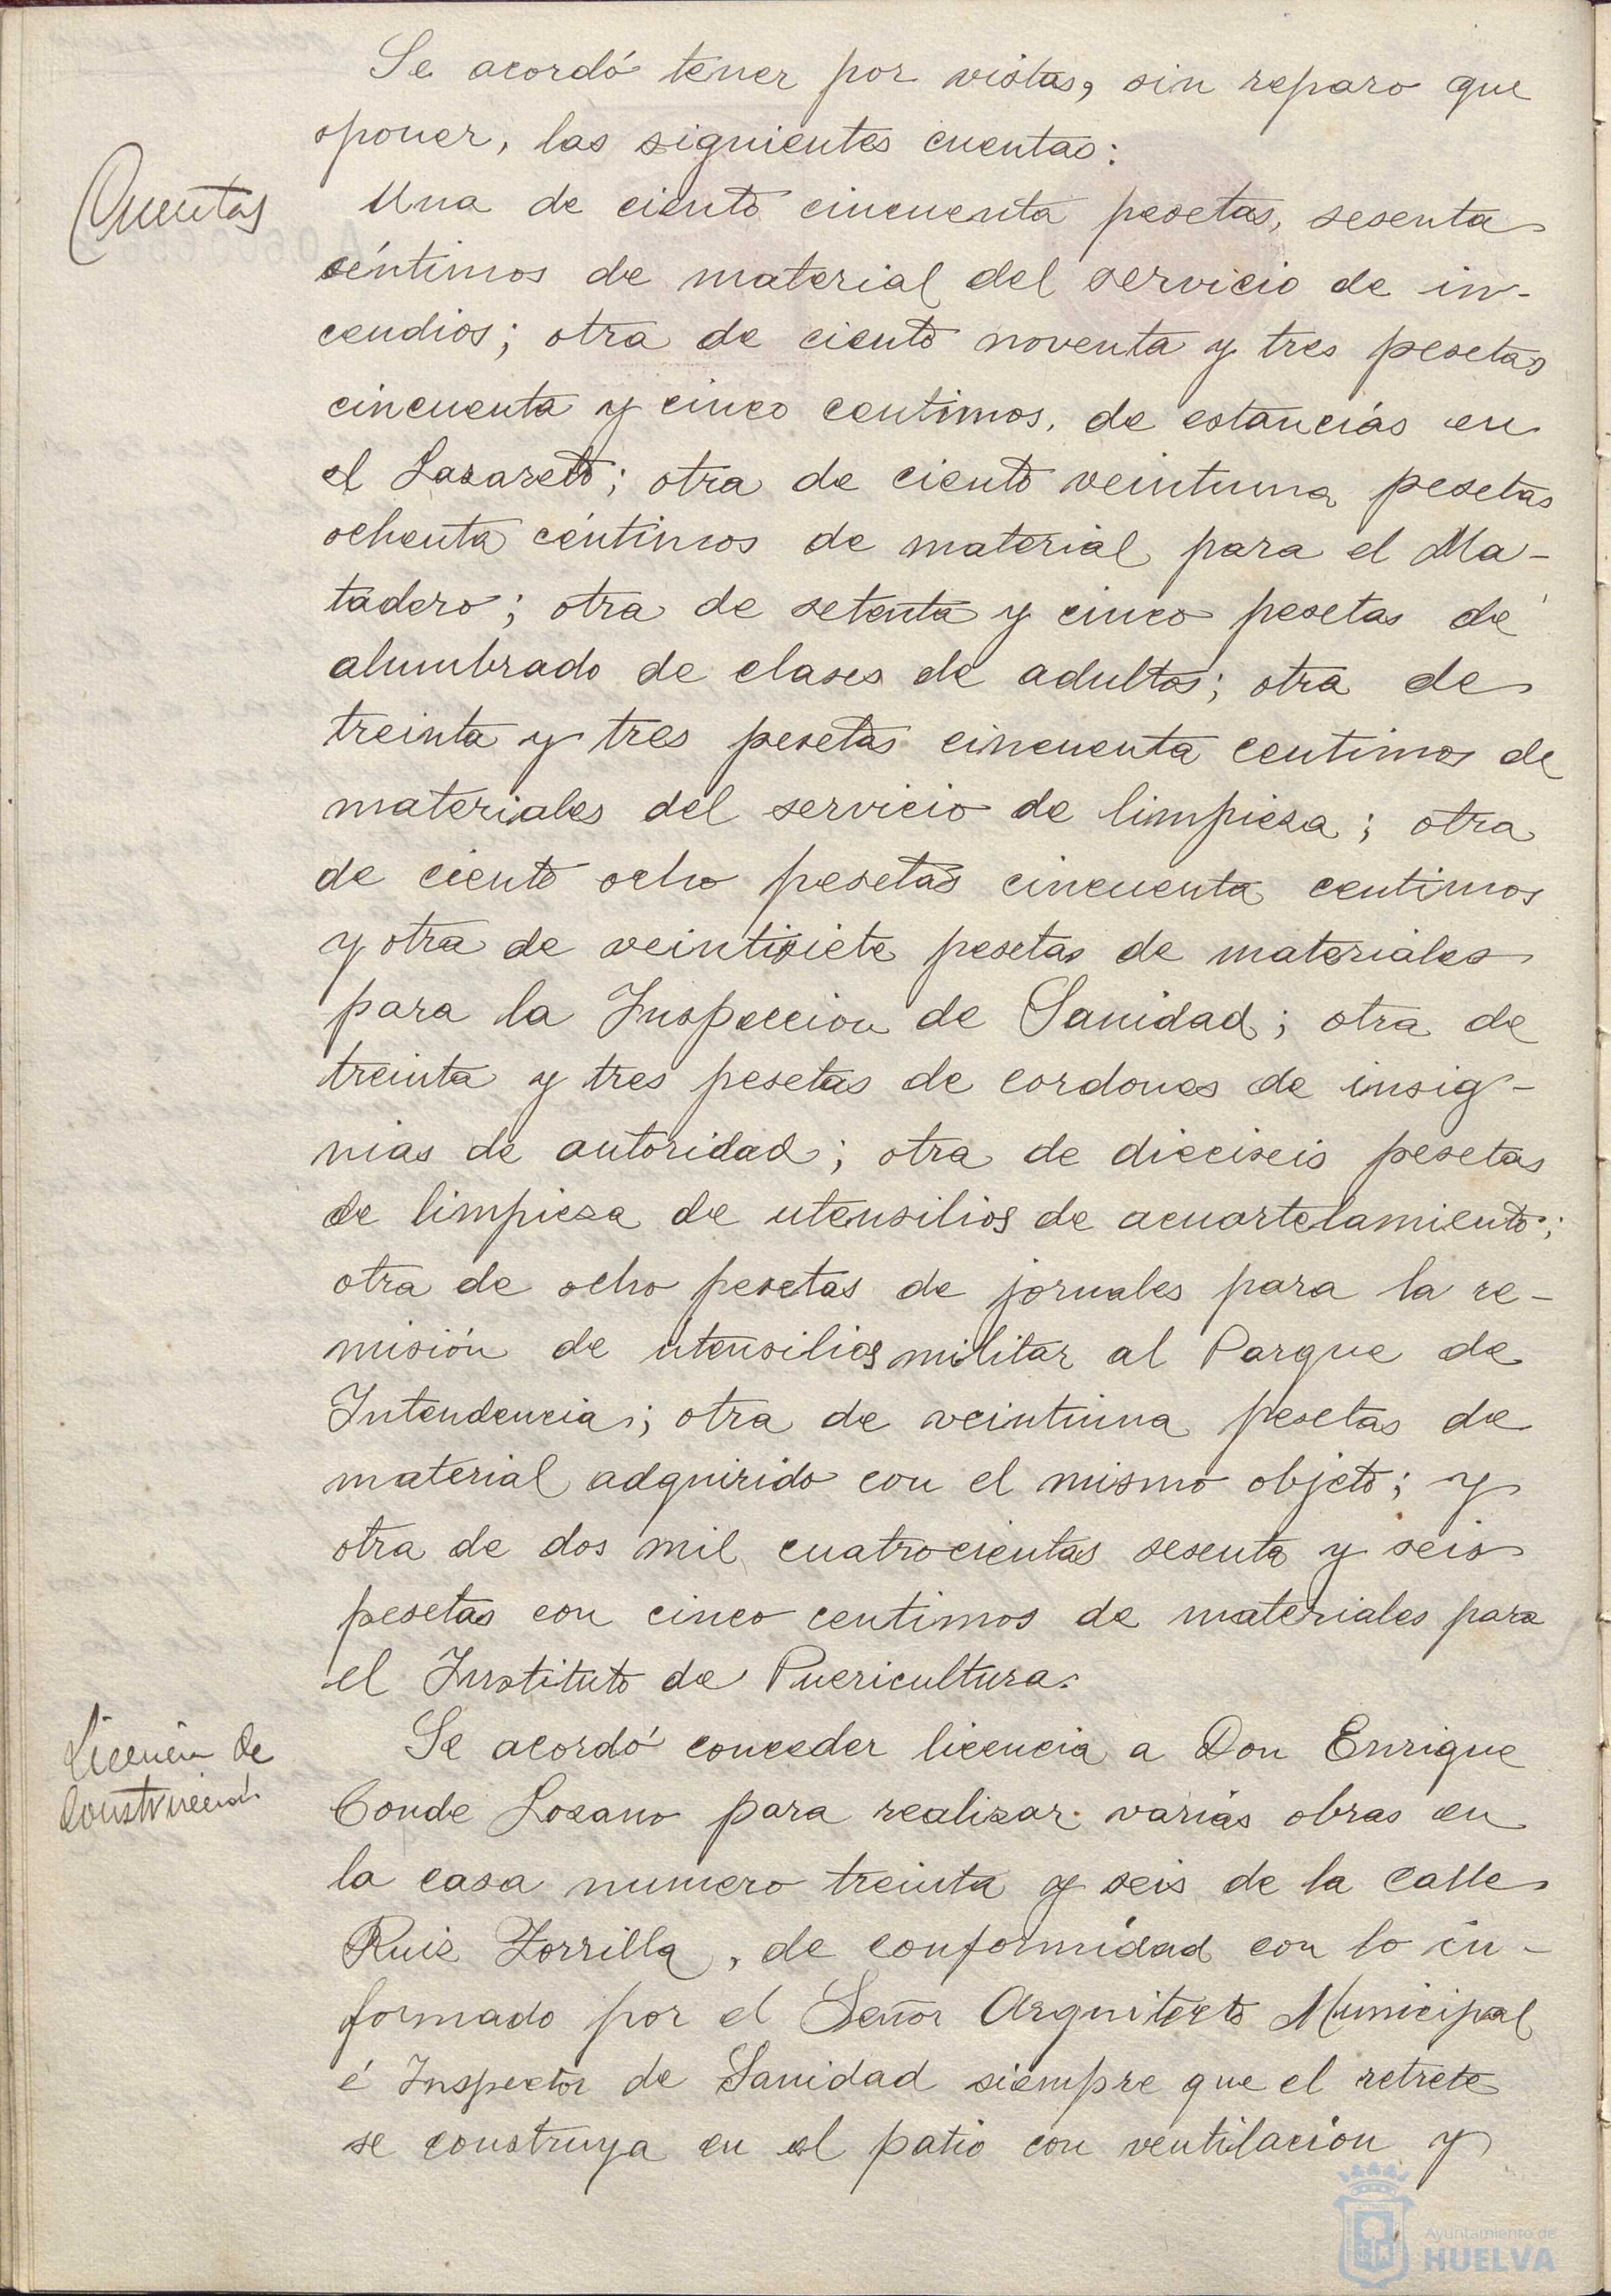 Se acordó tener por vistas, sin reparo que
oponer, las siguientes cuentas:
Cuentas
Una de ciento cincuenta pesetas, sesenta
céntimos de material del servicio de in-
cendios; otra de ciento noventa y tres pesetas
cincuenta y cinco centimos, de estancias en
el Lazareto; otra de ciento veintiuna pesetas
ochenta céntimos de material para el Ma-
tadero; otra de setenta y cinco pesetas de
alumbrado de clases de adultos; otra de
treinta y tres pesetas cincuenta centimos de
materiales del servicio de limpieza; otra
de ciento ocho pesetas cincuenta centimos
y otra de veintisiete pesetas de materiales
para la Inspeccion de Sanidad; otra de
treinta y tres pesetas de cordones de insig-
nias de autoridad; otra de dieciseis pesetas
de limpieza de utensilios de acuartelamiento;
otra de ocho pesetas de jornales para la re-
misión de utensilios militar al Parque de
Intendencia; otra de veintiuna pesetas de
material adquirido con el mismo objeto; y
otra de dos mil cuatrocientas sesenta y seis
pesetas con cinco centimos de materiales para
el Instituto de Puericultura.
Licencia de
construccion
Se acordó conceder licencia a Don Enrique
Conde Lozano para realizar varias obras en
la casa numero treinta y seis de la calle
Ruiz Zorrilla, de conformidad con lo in-
formado por el Señor Arquitecto Municipal
é Inspector de Sanidad siempre que el retrete
se construya en el patio con ventilación y
Ayuntamiento de
HUELVA